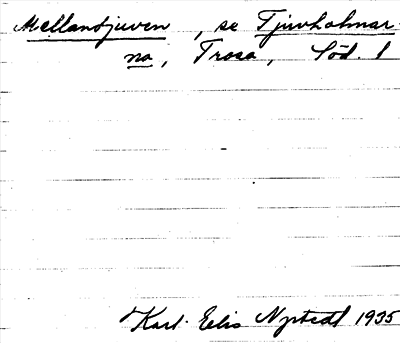 Mellandjuven, se Tjuvholmar-
na, Trosa, Söd. l
Karl-Elis Nystedt 1935